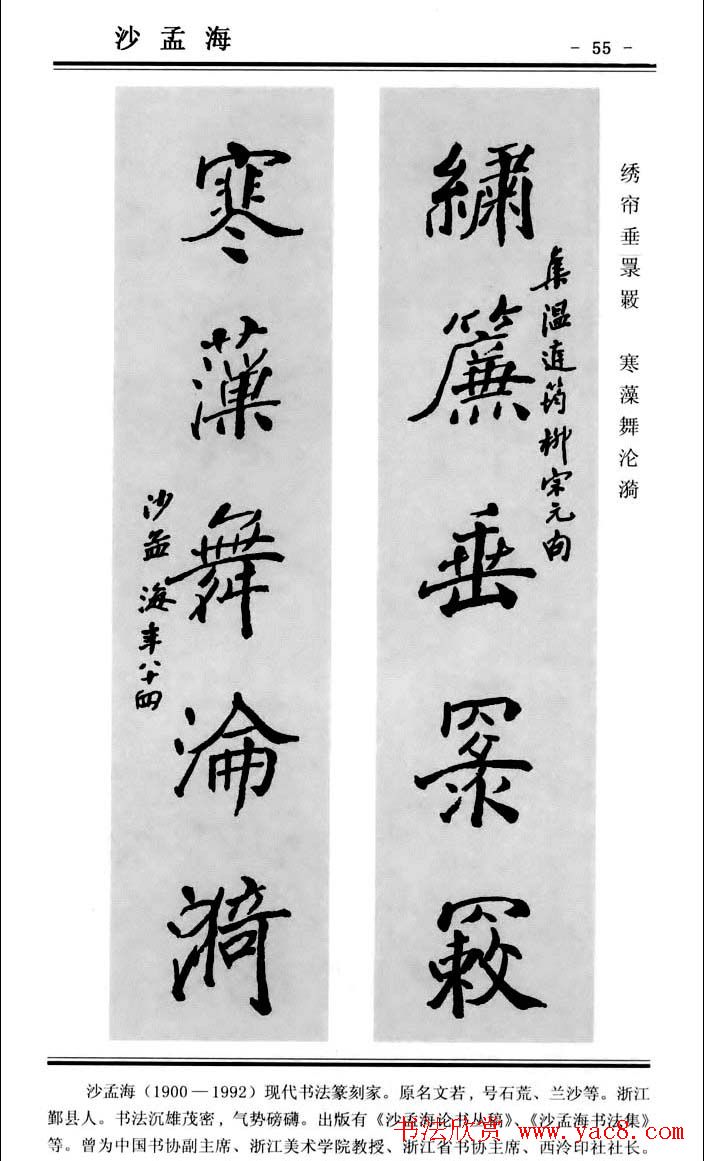 沙孟海
- 55 -
绣帘垂罘罳 寒藻舞沦漪
繡簾垂
集温庭筠柳宗元句
寒藻舞淪漪
沙孟海年八十四
沙孟海（1900—1992）现代书法篆刻家。原名文若，号石荒、兰沙等。浙江
鄞县人。书法沉雄茂密，气势磅礴。出版有《沙孟海论书丛稿》、《沙孟海书法集》
等。曾为中国书协副主席、浙江美术学院教授、浙江省书协主席、西泠印社社长。
书法欣赏 www.yac8.com